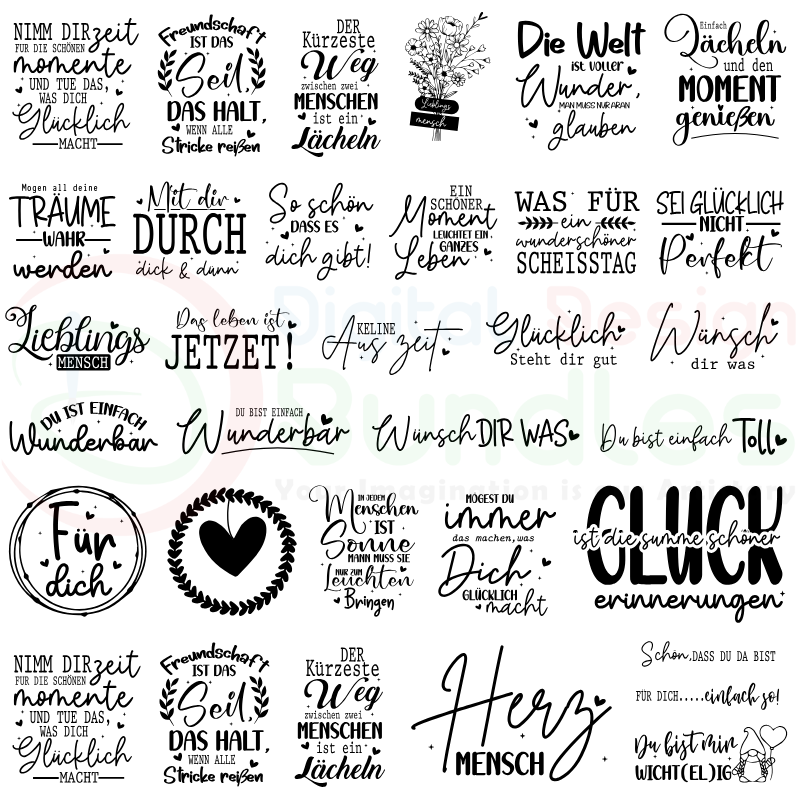 NIMM DIR zeit
FÜR DIE SCHÖNEN
momente
UND TUE DAS,
WAS DICH
Glücklich
MACHT
Freundschaft
IST DAS
Seil,
DAS HALT,
WENN ALLE
Stricke reißen
DER
Kürzeste
Weg
zwischen zwei
MENSCHEN
ist ein
Lächeln
Lieblings
mensch
Die Welt
ist voller
Wunder,
MAN MUSS NUR ARAN
glauben
Einfach
Lächeln
und den
MOMENT
genießen
Mogen all deine
TRÄUME
WAHR
werden
Mit dir
DURCH
dick & dünn
So schön
DASS ES
dich gibt!
EIN
SCHÖNER
Moment
LEUCHTET EIN
GANZES
Leben
WAS FÜR
ein
wunderschöner
SCHEISSTAG
SEI GLÜCKLICH
NICHT
Perfekt
Lieblings
MENSCH
Das leben ist
JETZET!
KELINE
Aus zeit
Glücklich
Steht dir gut
Wünsch
dir was
DU IST EINFACH
Wunderbar
DU BIST EINFACH
Wunderbär
Wünsch DIR WAS
Du bist einfach Toll
Für
dich
IN JEDEM
Menschen
IST
Sonne
MANN MUSS SIE
NUR ZUM
Leuchten
Bringen
MÖGEST DU
immer
das machen, was
Dich
GLÜCKLICH
macht
GLUCK
ist die summe schöner
erinnerungen
NIMM DIR zeit
FÜR DIE SCHÖNEN
momente
UND TUE DAS,
WAS DICH
Glücklich
MACHT
Freundschaft
IST DAS
Seil,
DAS HALT,
WENN ALLE
Stricke reißen
DER
Kürzeste
Weg
zwischen zwei
MENSCHEN
ist ein
Lächeln
Herz
MENSCH
Schön, DASS DU DA BIST
FÜR DICH.....einfach so!
Du bist mir
WICHT(EL)IG
Digital Design
Bundles
Your Imagination is our Artistory